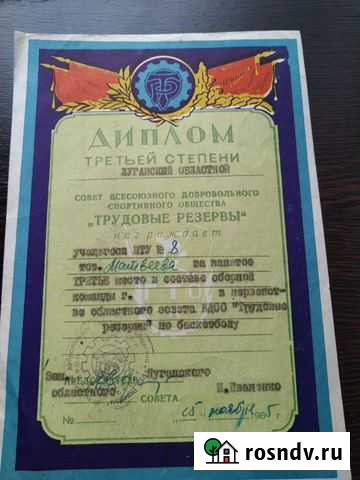 ДИПЛОМ
ТРЕТЬЕЙ СТЕПЕНИ
ЛУГАНСКИЙ ОБЛАСТНОЙ
СОВЕТ ВСЕСОЮЗНОГО ДОБРОВОЛЬНОГО
СПОРТИВНОГО ОБЩЕСТВА
„ТРУДОВЫЕ РЕЗЕРВЫ"
награждает
учащегося ПТУ № 8
тов. Матвеева за занятое
ТРЕТЬЕ место в составе сборной
команды г. в первенст-
ве областного совета ВДСО "Трудовые
резервы" по баскетболу
Зам. Луганского
областного СОВЕТА П.Иваненко
№ „15" ноября 1965 г.
rosndv.ru